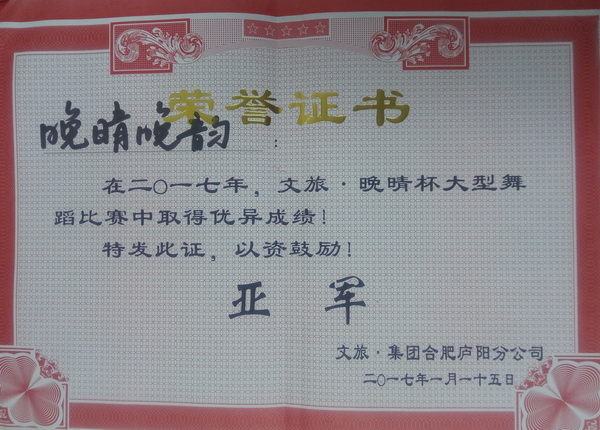 荣誉证书
晚晴晚韵：
在二〇一七年，文旅·晚晴杯大型舞
蹈比赛中取得优异成绩！
特发此证，以资鼓励！
亚军
文旅·集团合肥庐阳分公司
二〇一七年一月一十五日